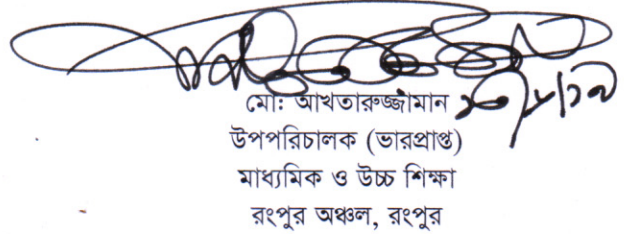 মোঃ আখতারুজ্জামান
উপপরিচালক (ভারপ্রাপ্ত)
মাধ্যমিক ও উচ্চ শিক্ষা
রংপুর অঞ্চল, রংপুর